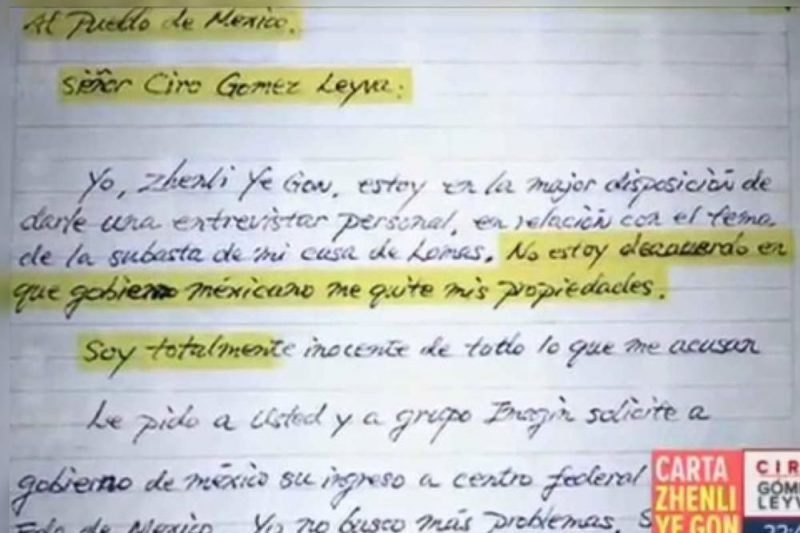 Al Pueblo de Mexico.
Señor Ciro Gomez Leyva:
Yo, Zhenli Ye Gon, estoy en la major disposición de
darle una entrevistar personal, en relación con el tema
de la subasta de mi casa de Lomas. No estoy deacuerdo en
que gobierno méxicano me quite mis propiedades.
Soy totalmente inocente de todo lo que me acusan
Le pido a Usted y a grupo Imagin solicite a
gobierno de méxico su ingreso a centro federal
Edo de Mexico. Yo no busco más problemas. S
CARTA
ZHENLI
YE GON
CIR
GÓM
LEYV